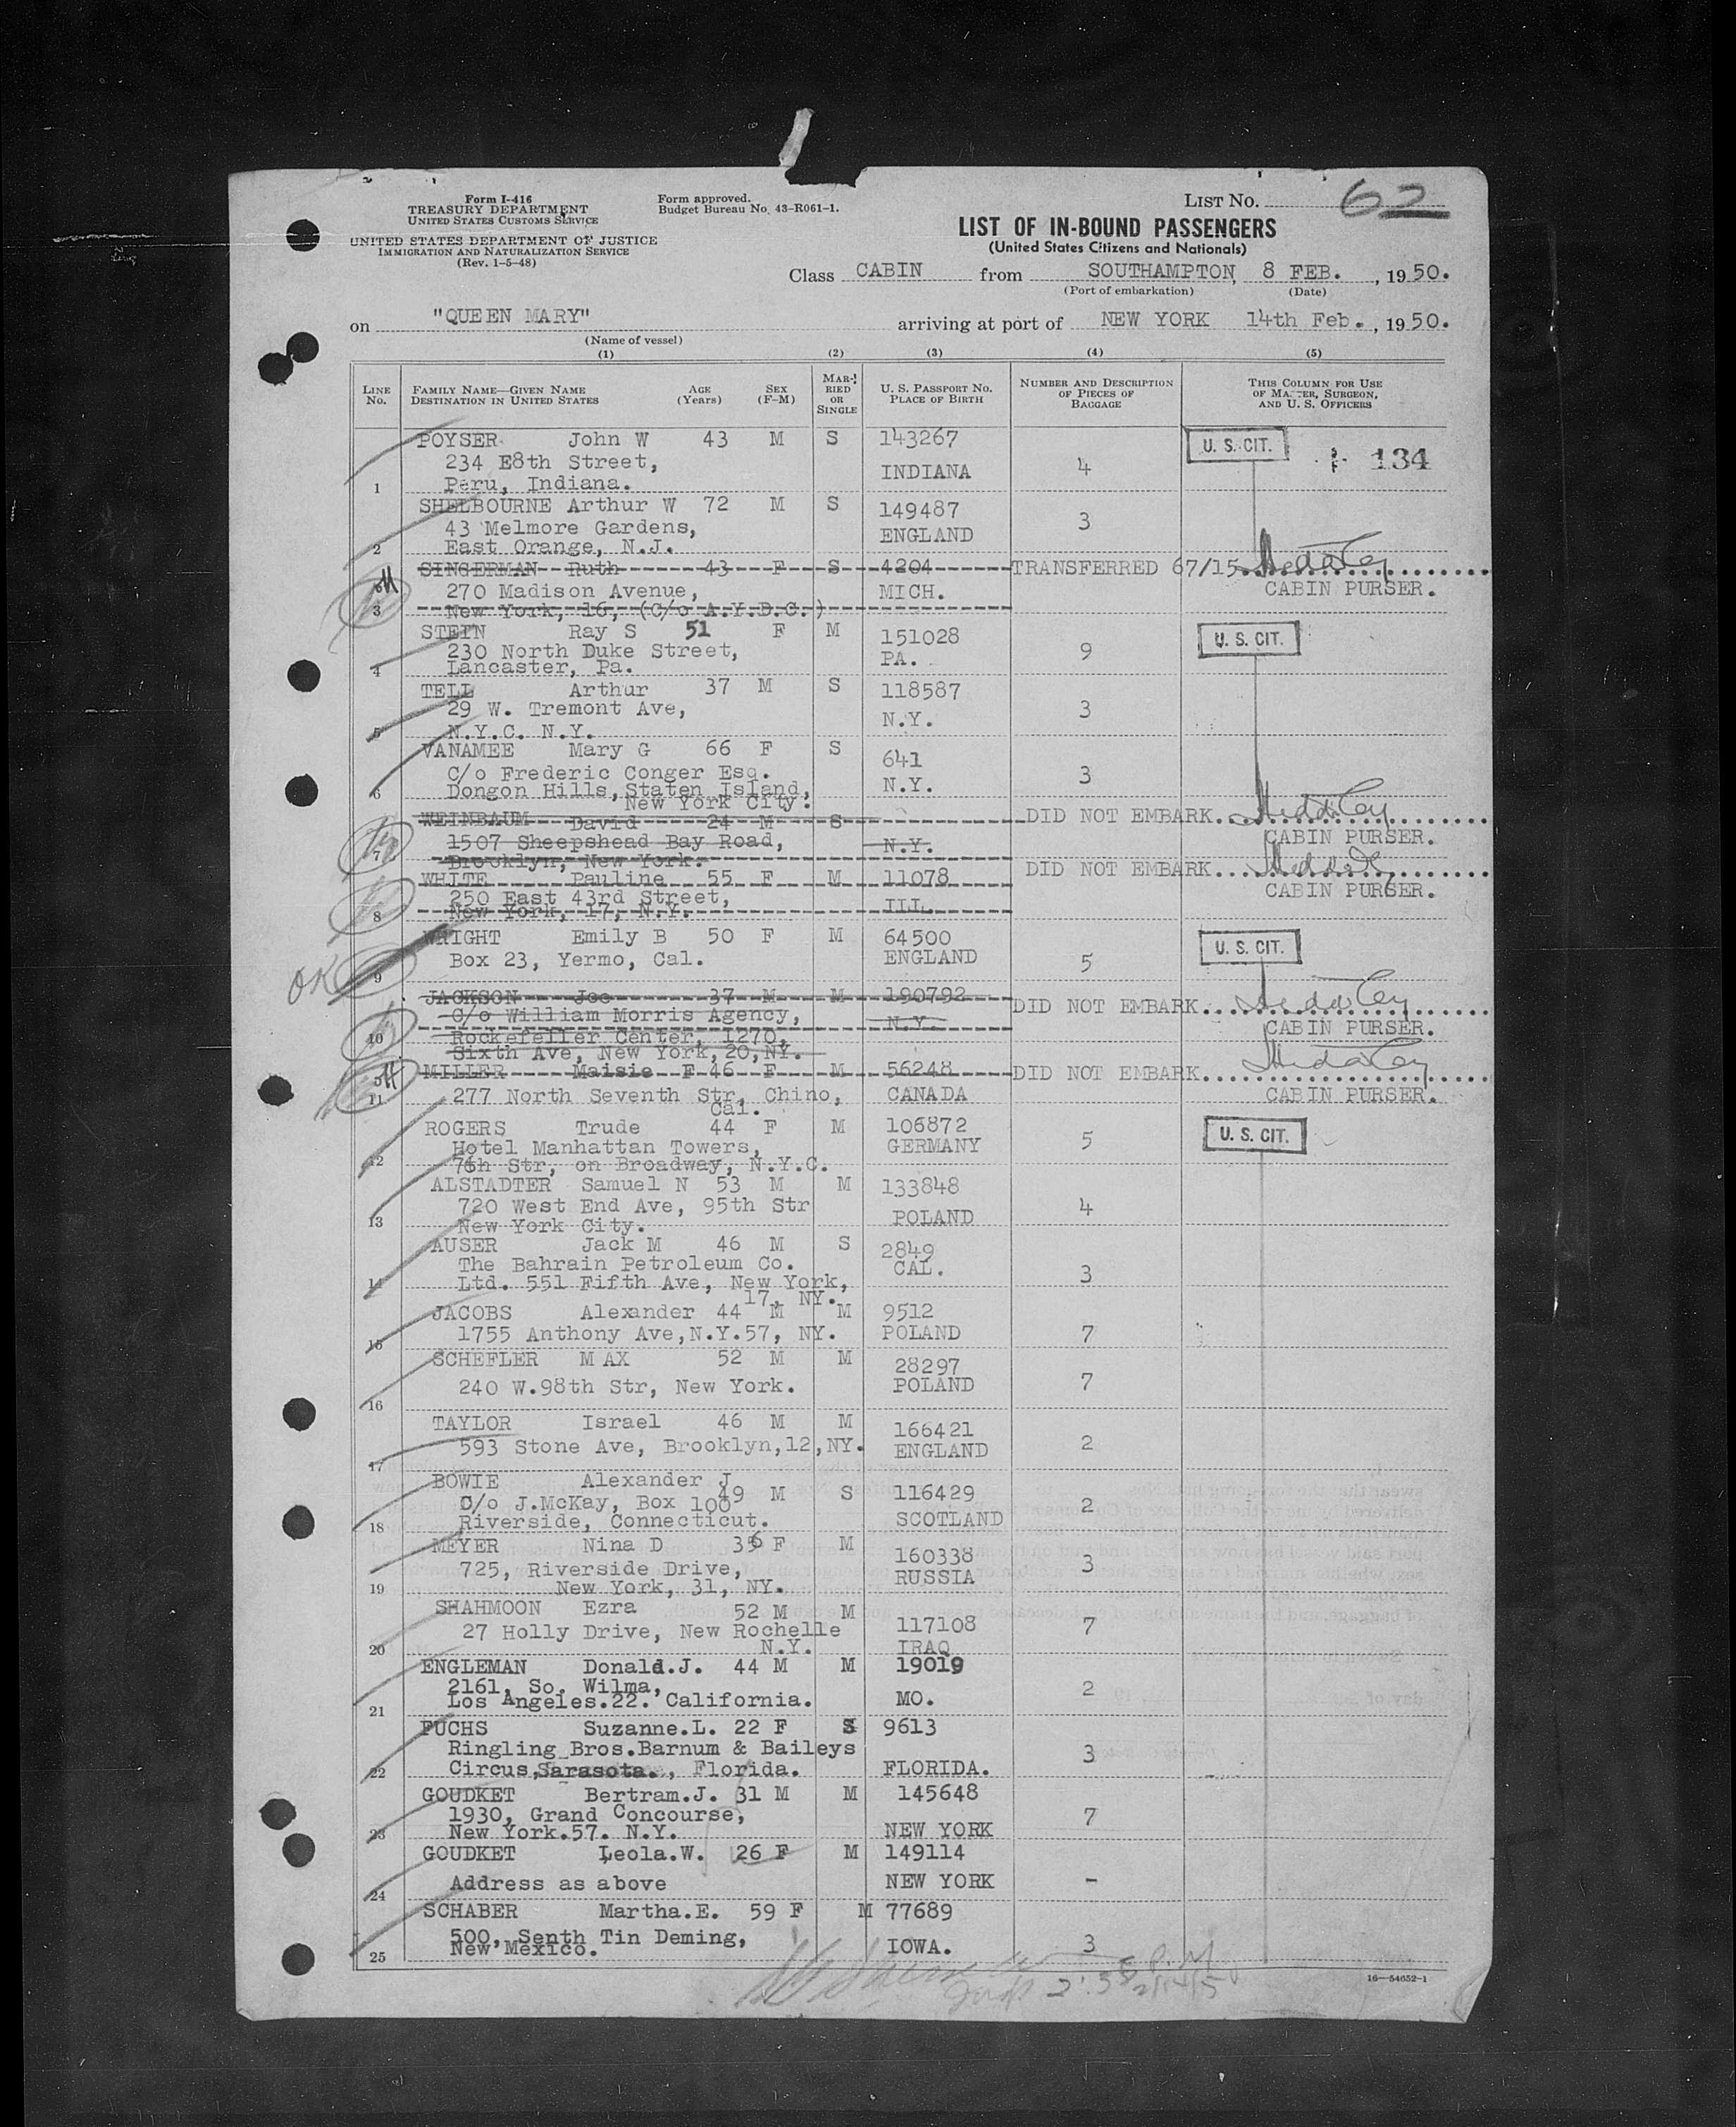 Form I-416
TREASURY DEPARTMENT
UNITED STATES CUSTOMS SERVICE
UNITED STATES DEPARTMENT OF JUSTICE
IMMIGRATION AND NATURALIZATION SERVICE
(Rev. 1-5-48)
Form approved.
Budget Bureau No. 43-R061-1.
LIST NO. 62
LIST OF IN-BOUND PASSENGERS
(United States Citizens and Nationals)
Class CABIN from SOUTHAMPTON, 8 FEB., 1950.
(Port of embarkation) (Date)
on "QUEEN MARY" arriving at port of NEW YORK 14th Feb., 1950.
(Name of vessel)
(1) (2) (3) (4) (5)
LINE NO.
FAMILY NAME—GIVEN NAME
DESTINATION IN UNITED STATES
AGE (Years)
SEX (F-M)
MARRIED OR SINGLE
U. S. PASSPORT NO.
PLACE OF BIRTH
NUMBER AND DESCRIPTION OF PIECES OF BAGGAGE
THIS COLUMN FOR USE OF MASTER, SURGEON, AND U. S. OFFICERS
POYSER John W 43 M S 143267 U. S. CIT. 134
234 E8th Street, INDIANA 4
1 Peru, Indiana.
SHELBOURNE Arthur W 72 M S 149487
43 Melmore Gardens, ENGLAND 3
2 East Orange, N.J.
SINGERMAN Ruth 43 F S 4204 TRANSFERRED 67/15
270 Madison Avenue, MICH. CABIN PURSER.
3 New York, 16, (C/o A.Y.D.C.)
STEIN Ray S 51 F M 151028 U. S. CIT.
230 North Duke Street, PA. 9
4 Lancaster, Pa.
TELL Arthur 37 M S 118587
29 W. Tremont Ave, N.Y. 3
5 N.Y.C. N.Y.
VANAMEE Mary G 66 F S 641
C/o Frederic Conger Esq. N.Y. 3
6 Dongon Hills, Staten Island,
New York City.
WEINBAUM David 24 M S DID NOT EMBARK
7 1507 Sheepshead Bay Road, N.Y. CABIN PURSER.
Brooklyn, New York.
WHITE Pauline 55 F M 11078 DID NOT EMBARK
250 East 43rd Street, ILL. CABIN PURSER.
8 New York, 17, N.Y.
WRIGHT Emily B 50 F M 64500 U. S. CIT.
Box 23, Yermo, Cal. ENGLAND 5
OK 9
JACKSON Joe 37 M M 190792 DID NOT EMBARK
C/o William Morris Agency, N.Y. CABIN PURSER.
10 Rockefeller Center, 1270,
Sixth Ave, New York, 20, NY.
MILLER Maisie F 46 F M 56248 DID NOT EMBARK
11 277 North Seventh Str, Chino, CANADA CABIN PURSER.
Cal.
ROGERS Trude 44 F M 106872 U. S. CIT.
Hotel Manhattan Towers, GERMANY 5
12 76h Str, on Broadway, N.Y.C.
ALSTADTER Samuel N 53 M M 133848
720 West End Ave, 95th Str POLAND 4
13 New York City.
AUSER Jack M 46 M S 2849
The Bahrain Petroleum Co. CAL. 3
14 Ltd. 551 Fifth Ave, New York,
17, NY.
JACOBS Alexander 44 M M 9512
15 1755 Anthony Ave, N.Y.57, NY. POLAND 7
SCHEFLER MAX 52 M M 28297
240 W.98th Str, New York. POLAND 7
16
TAYLOR Israel 46 M M 166421
593 Stone Ave, Brooklyn,12,NY. ENGLAND 2
17
BOWIE Alexander J 49 M S 116429
C/o J.McKay, Box 100 SCOTLAND 2
18 Riverside, Connecticut.
MEYER Nina D 36 F M 160338
725, Riverside Drive, RUSSIA 3
19 New York, 31, NY.
SHAHMOON Ezra 52 M M 117108
27 Holly Drive, New Rochelle IRAQ 7
20 N.Y.
ENGLEMAN Donald.J. 44 M M 19019
2161, So. Wilma, MO. 2
21 Los Angeles.22. California.
FUCHS Suzanne.L. 22 F S 9613
Ringling Bros.Barnum & Baileys 3
22 Circus, Sarasota., Florida. FLORIDA.
GOUDKET Bertram.J. 31 M M 145648
1930, Grand Concourse, 7
23 New York.57. N.Y. NEW YORK
GOUDKET Leola.W. 26 F M 149114
24 Address as above NEW YORK -
SCHABER Martha.E. 59 F M 77689
500, Senth Tin Deming, IOWA. 3
25 New Mexico.
16—54652-1